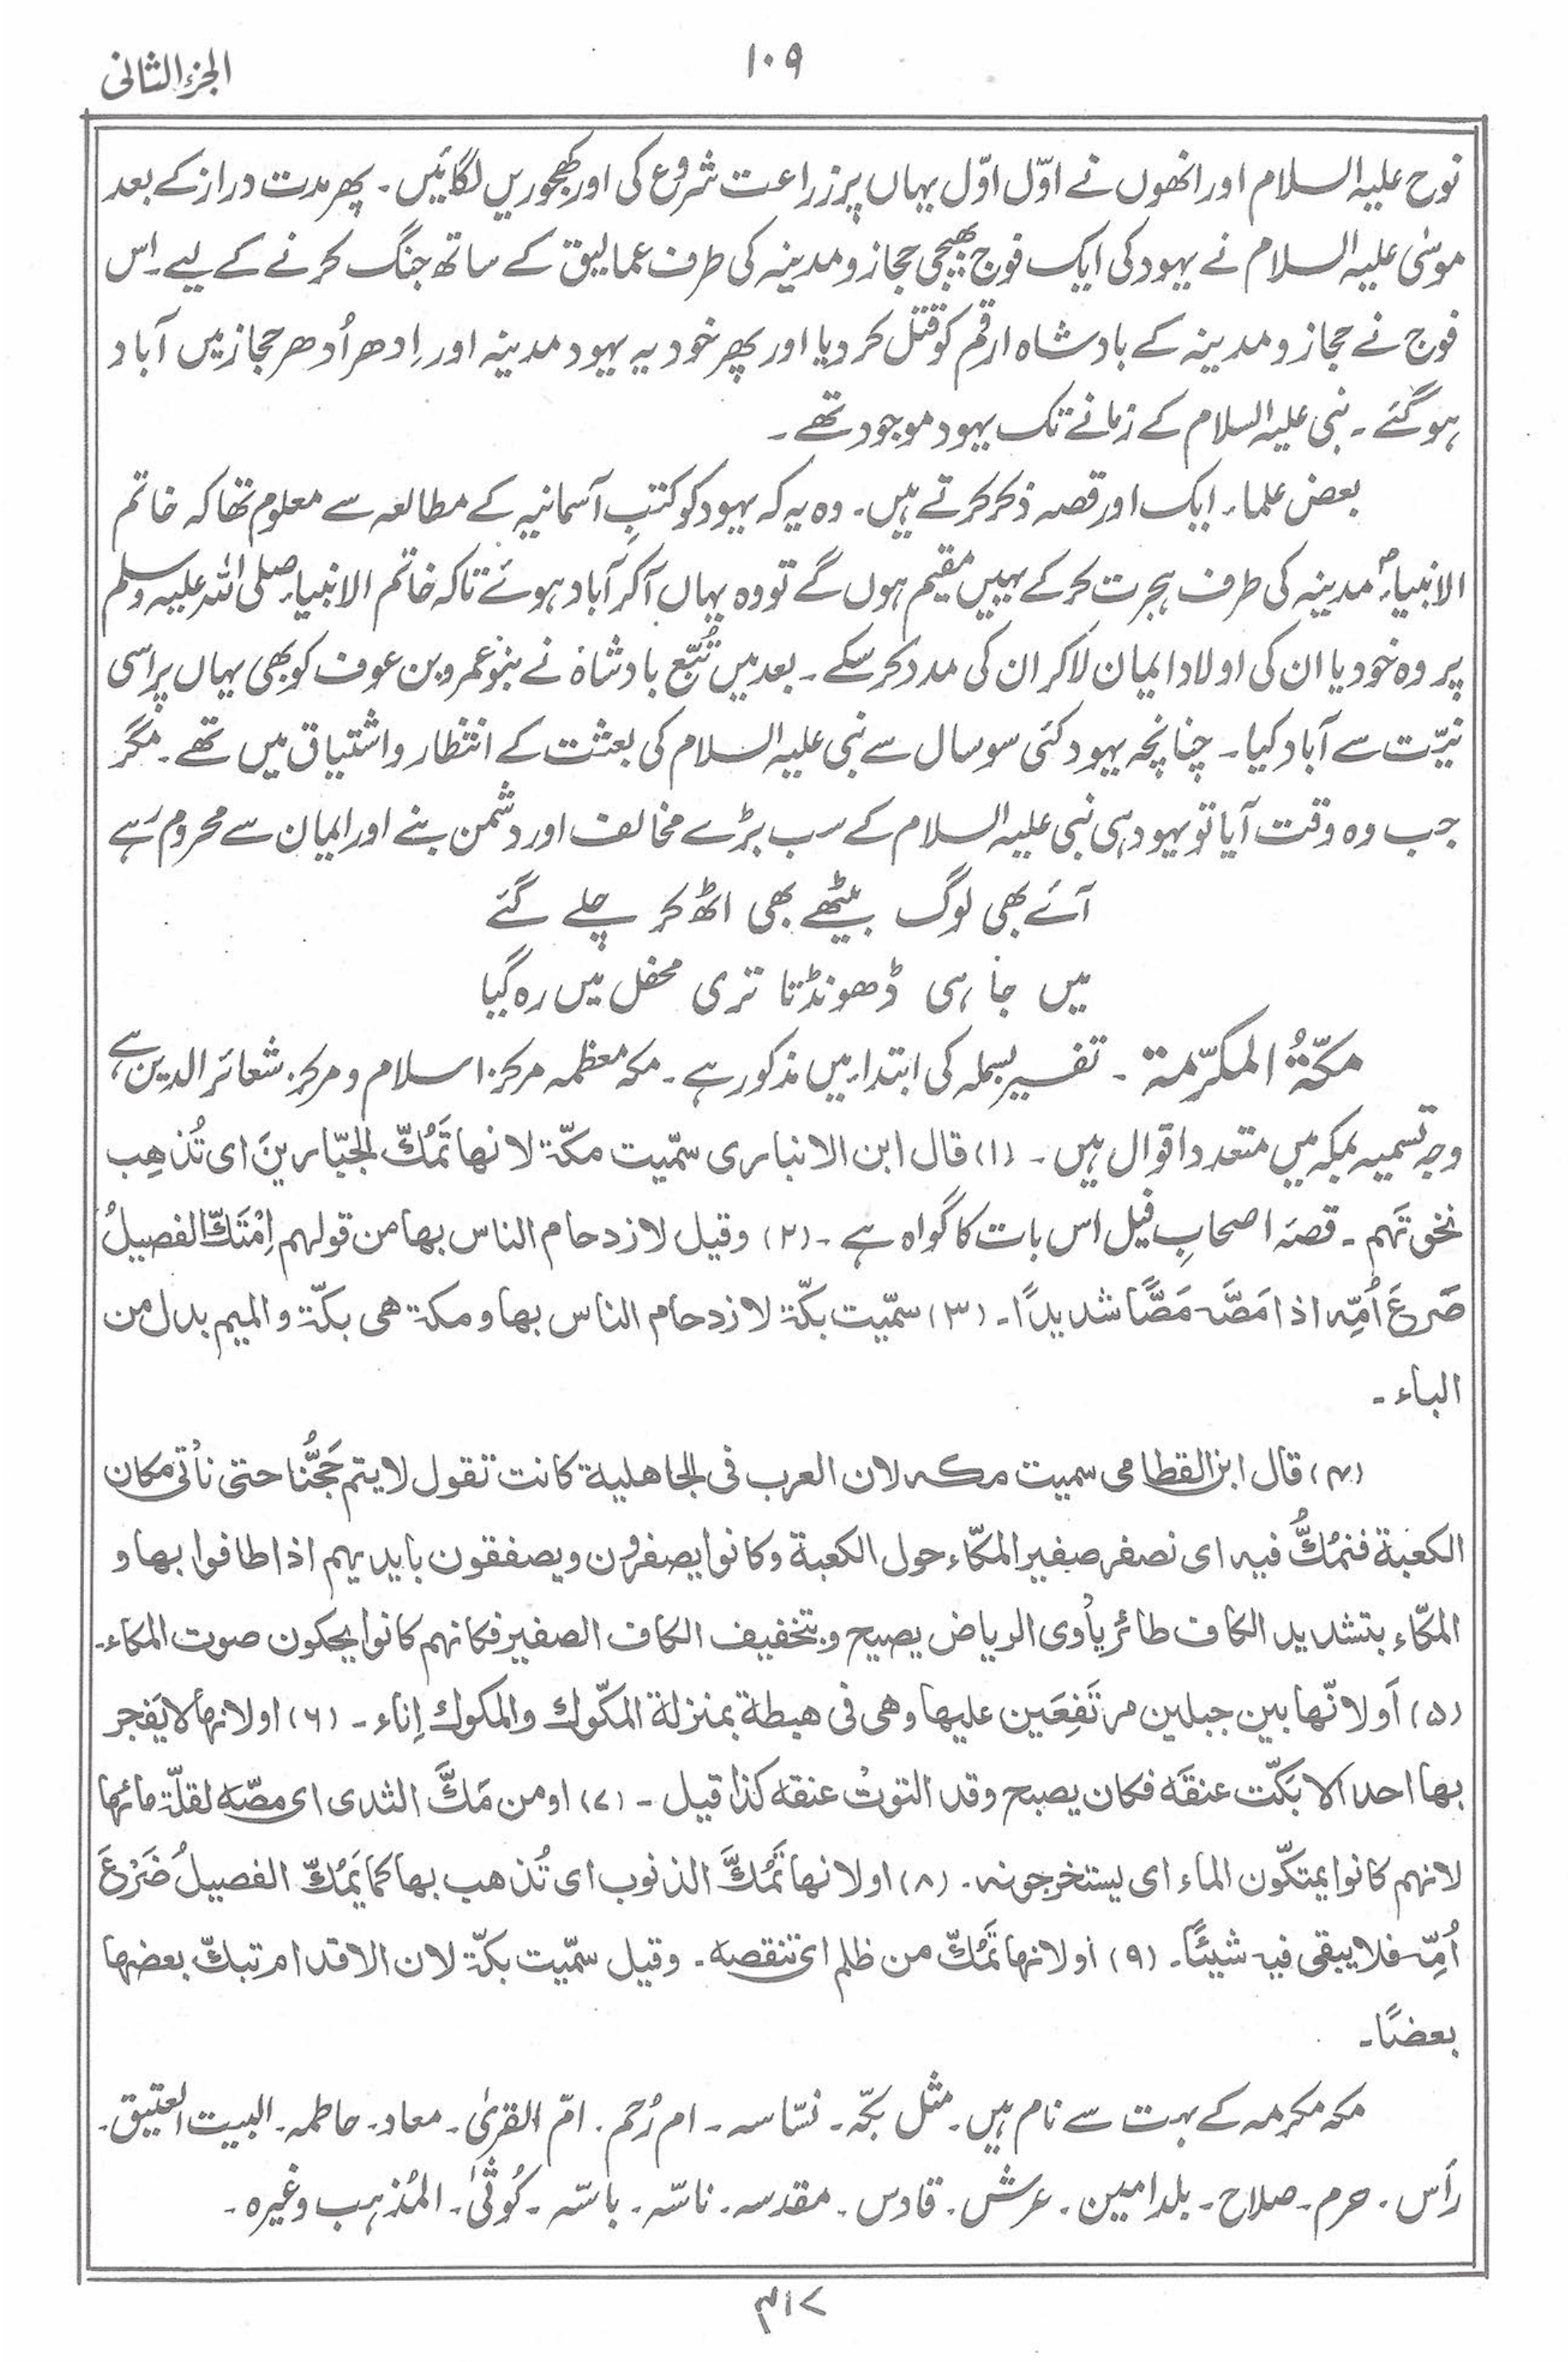 الجزء الثانی
۱۰۹
نوح علیہ السلام اور انھوں نے اوّل اوّل یہاں پر زراعت شروع کی اور کھجوریں لگائیں ۔ پھر مدت دراز کے بعد
موسٰی علیہ السلام نے یہود کی ایک فوج بھیجی حجاز و مدینہ کی طرف عمالیق کے ساتھ جنگ کرنے کے لیے ۔ اس
فوج نے حجاز و مدینہ کے بادشاہ ارقم کو قتل کر دیا اور پھر خود یہ یہود مدینہ اور اِدھر اُدھر حجاز میں آباد
ہو گئے ۔ نبی علیہ السلام کے زمانے تک یہود موجود تھے ۔
بعض علماء ایک اور قصہ ذکر کرتے ہیں ۔ وہ یہ کہ یہود کو کتبِ آسمانیہ کے مطالعہ سے معلوم تھا کہ خاتم
الانبیاءؐ مدینہ کی طرف ہجرت کر کے یہیں مقیم ہوں گے تو وہ یہاں آکر آباد ہوئے تاکہ خاتم الانبیاء صلی اللہ علیہ وسلم
پر وہ خود یا ان کی اولاد ایمان لاکر ان کی مدد کر سکے ۔ بعد میں تُبّع بادشاہ نے بنو عمرو بن عوف کو بھی یہاں پر اسی
نیّت سے آباد کیا ۔ چنانچہ یہود کئی سو سال سے نبی علیہ السلام کی بعثت کے انتظار و اشتیاق میں تھے ۔ مگر
جب وہ وقت آیا تو یہود ہی نبی علیہ السلام کے سب بڑے مخالف اور دشمن بنے اور ایمان سے محروم رہے
آئے بھی لوگ بیٹھے بھی اٹھ کر چلے گئے
میں جا ہی ڈھونڈتا تری محفل میں رہ گیا
مکّۃُ المکرّمۃ ۔ تفسیر بسملہ کی ابتداء میں مذکور ہے ۔ مکہ معظمہ مرکز اسلام و مرکز شعائر الدین ہے
وجہ تسمیہ بمکہ میں متعدد اقوال ہیں ۔ (۱) قال ابن الانباری سمّیت مکّۃ لانھا تَمُكّ الجبّارینَ ای تُذھِب
نخوتَہم ۔ قصۂ اصحابِ فیل اس بات کا گواہ ہے ۔ (۲) وقیل لازدحام الناس بھا من قولہم اِمْتَكّ الفصیلُ
ضَرعَ اُمِّہ اذا مَصَّہ مَصًّا شدیدًا ۔ (۳) سمّیت بکّۃ لازدحام الناس بھا و مکۃ ھی بکّۃ و المیم بدل من
الباء ۔
(۴) قال ابن القطامی سمیت مکہ لان العرب فی الجاھلیۃ کانت تقول لا یتم حَجُّنا حتی نأتی مکان
الکعبۃ فنمُكُّ فیہ ای نصفر صفیر المکّاء حول الکعبۃ وکانوا یصفرون ویصفقون بایدیہم اذا طافوا بھا و
المکّاء بتشدید الکاف طائر یأوی الریاض یصیح و بتخفیف الکاف الصفیر فکانہم کانوا یحکون صوت المکاء ۔
(۵) اَو لانّھا بین جبلین مرتَفِعَین علیھا وھی فی ھبطۃ بمنزلۃ المکّوك والمکوك اِناء ۔ (۶) او لانہا لا یَفجر
بھا احد الا بَکّت عنقَہ فکان یصبح وقد التوتْ عنقہ کذا قیل ۔ (۷) او من مَكَّ الثدی ای مصّہ لقلّۃ مائہا
لانہم کانوا یمتکّون الماء ای یستخرجونہ ۔ (۸) او لانھا تَمُكَّ الذنوب ای تُذھب بھا کما یَمُكّ الفصیلُ ضَرْعَ
اُمِّہ فلا یبقی فیہ شیئًا ۔ (۹) او لانھا تَمُكّ من ظلم ای تنقصہ ۔ وقیل سمّیت بکّۃ لان الاقدام تبكّ بعضہا
بعضًا ۔
مکہ مکرمہ کے بہت سے نام ہیں ۔ مثل بکّہ ۔ نسّاسہ ۔ ام رُحم ۔ امّ القریٰ ۔ معاد ۔ حاطمہ ۔ البیت العتیق ۔
رأس ۔ حرم ۔ صلاح ۔ بلد امین ۔ عرش ۔ قادس ۔ مقدسہ ۔ ناسّہ ۔ باسّہ ۔ کُوثٰی ۔ المُذہب وغیرہ ۔
۴۱۷